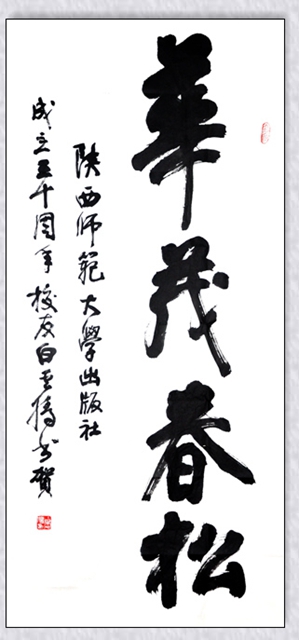 華茂春松
陕西师範大學出版社
成立五十周年校友白雲腾书賀